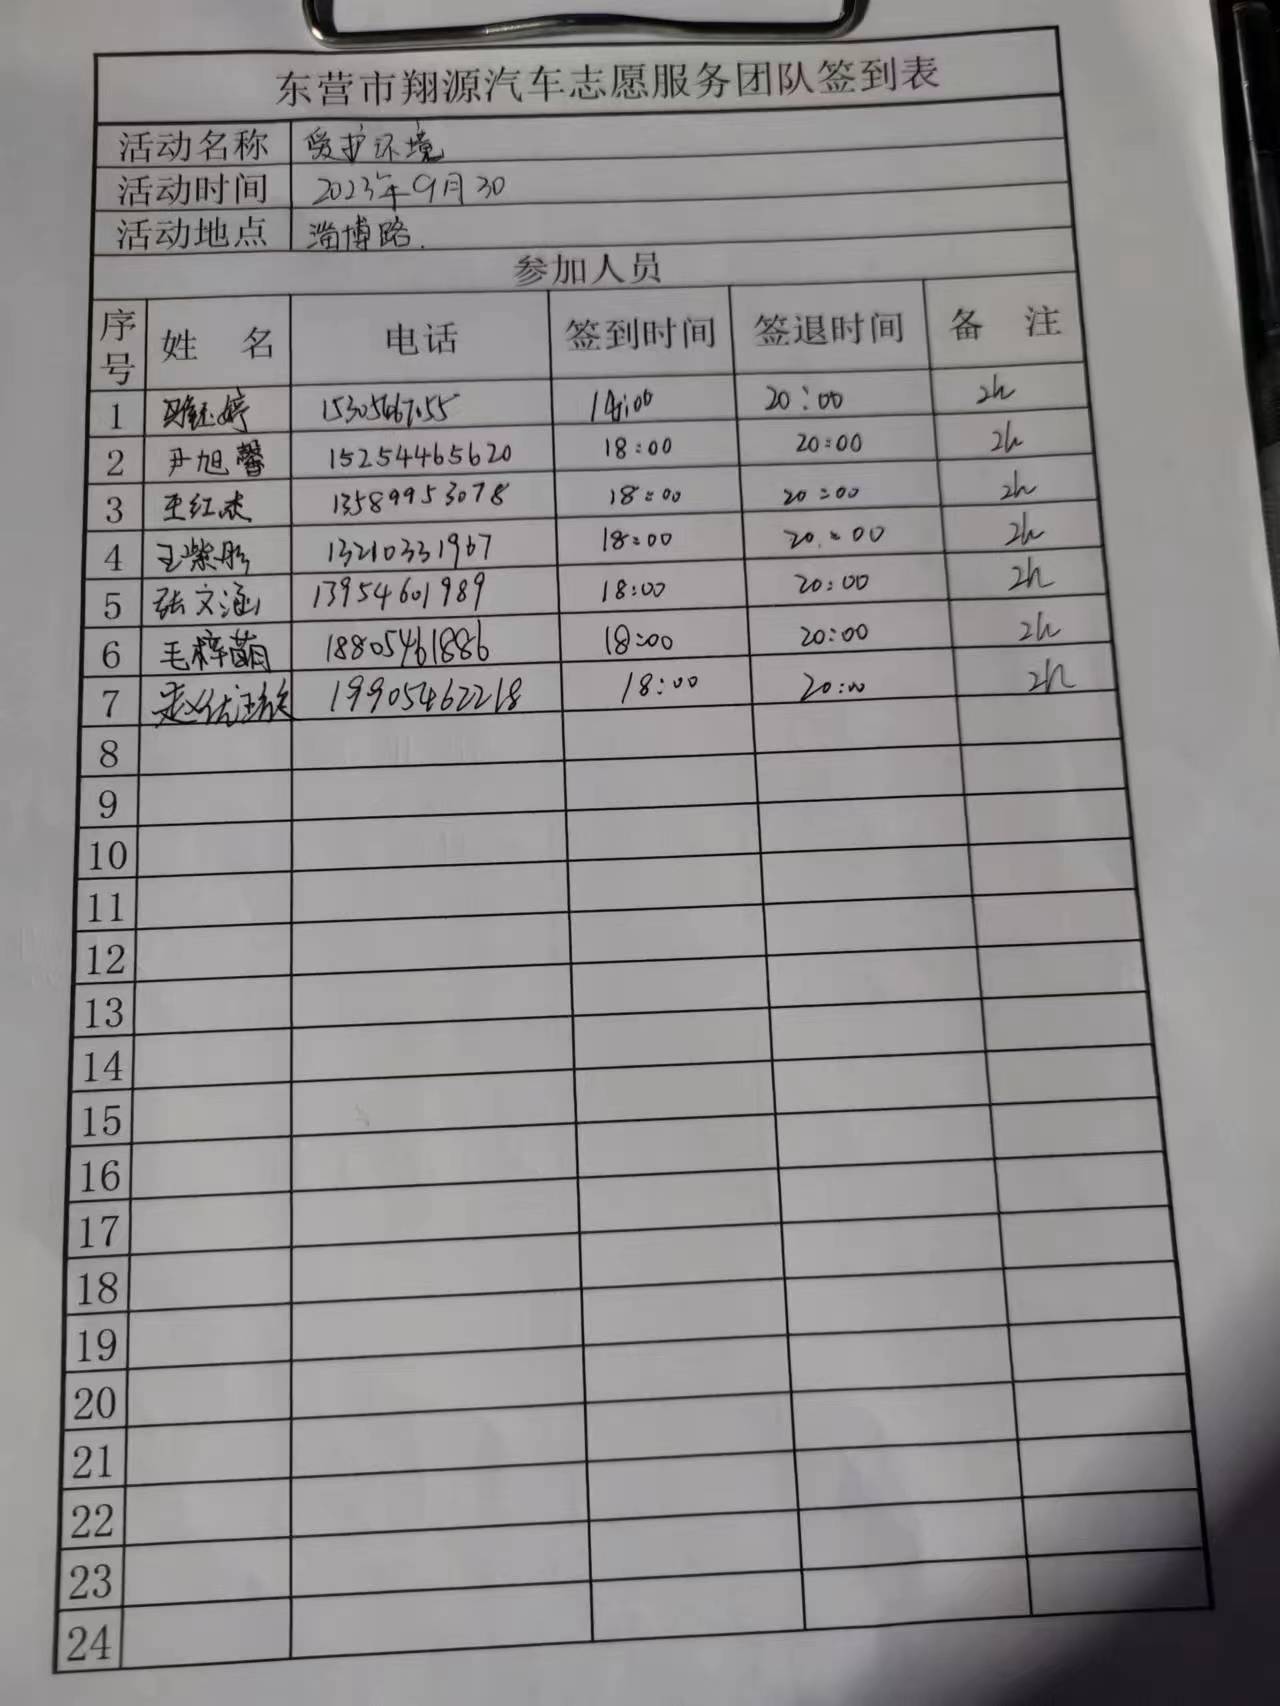 东营市翔源汽车志愿服务团队签到表
活动名称 爱护环境
活动时间 2023年9月30
活动地点 淄博路.
参加人员
序号 姓名 电话 签到时间 签退时间 备注
1 婷 20:00 2h
2 尹旭馨 15254465620 18:00 20:00 2h
3 王红杰 13589953078 18:00 20:00 2h
4 王紫彤 13210331967 18:00 20:00 2h
5 张文涵 13954601989 18:00 20:00 2h
6 毛梓萌 18805461886 18:00 20:00 2h
7 赵 19905462218 18:00 20:00 2h
8
9
10
11
12
13
14
15
16
17
18
19
20
21
22
23
24